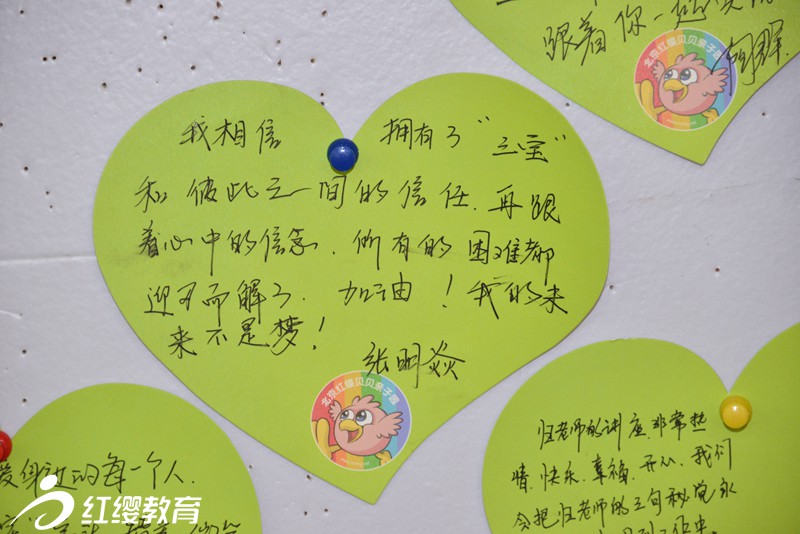 跟着你一起
我相信 拥有了“三宝”
和彼此之间的信任，再跟
着心中的信念，所有的困难都
迎刃而解了，加油！我的未
来不是梦！
张明焱
北京红缨贝贝亲子园
北京红缨贝贝亲子园
爱身边的每一个人，
红缨教育
归老师的讲座，非常热
情、快乐、幸福、开心，我们
会把归老师的三句秘诀永